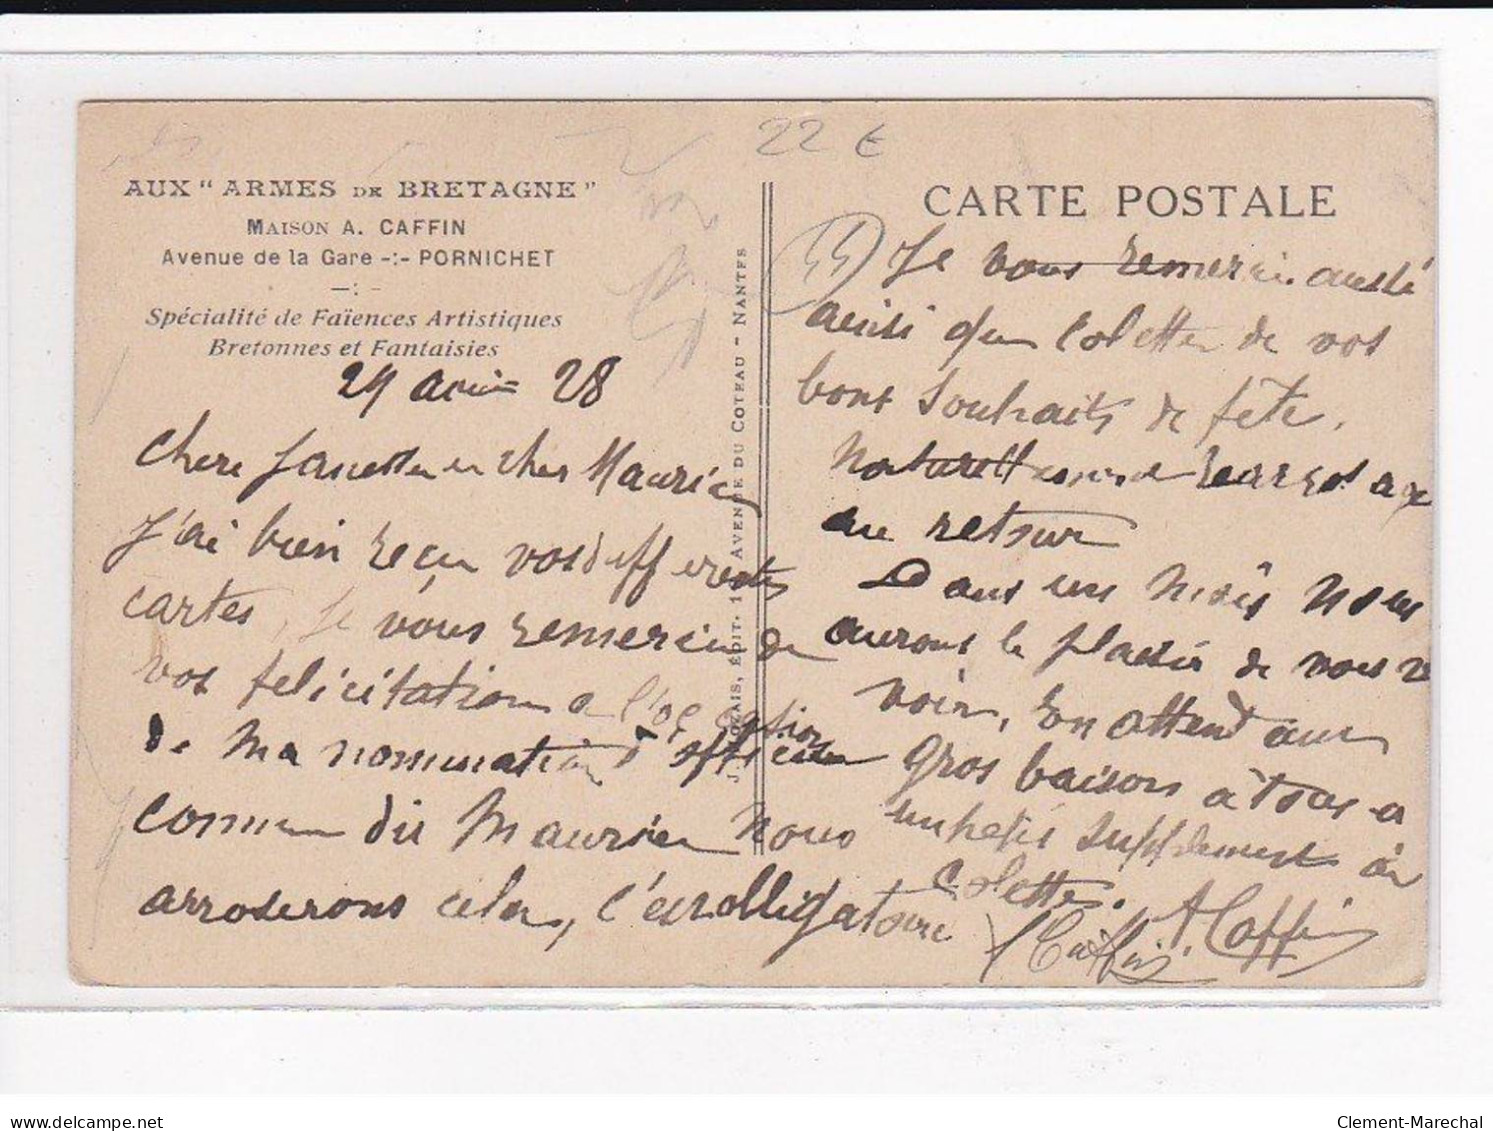 22 €
AUX "ARMES DE BRETAGNE"
MAISON A. CAFFIN
Avenue de la Gare -:- PORNICHET
-:-
Spécialité de Faïences Artistiques
Bretonnes et Fantaisies
29 28
chere et cher Maurice
J'ai bien reçu vos differentes
cartes, Je vous remercie de
vos felicitation a l'occasion
de ma nomination d'officier
comme dit Maurice nous
arroserons cela, c'est obligatoire
J. NOZAIS, ÉDIT. AVENUE DU COTEAU - NANTES
CARTE POSTALE
Je vous remercie aussi
ainsi que Colette de vos
bons souhaits de fête.
Naturellement
au retour
Dans un mois nous
aurons le plaisir de vous
voir, En attendant
Gros baisers à tous et
un petit supplement à
Colette.
Caffin A Caffin
Clement-Marechal
www.delcampe.net